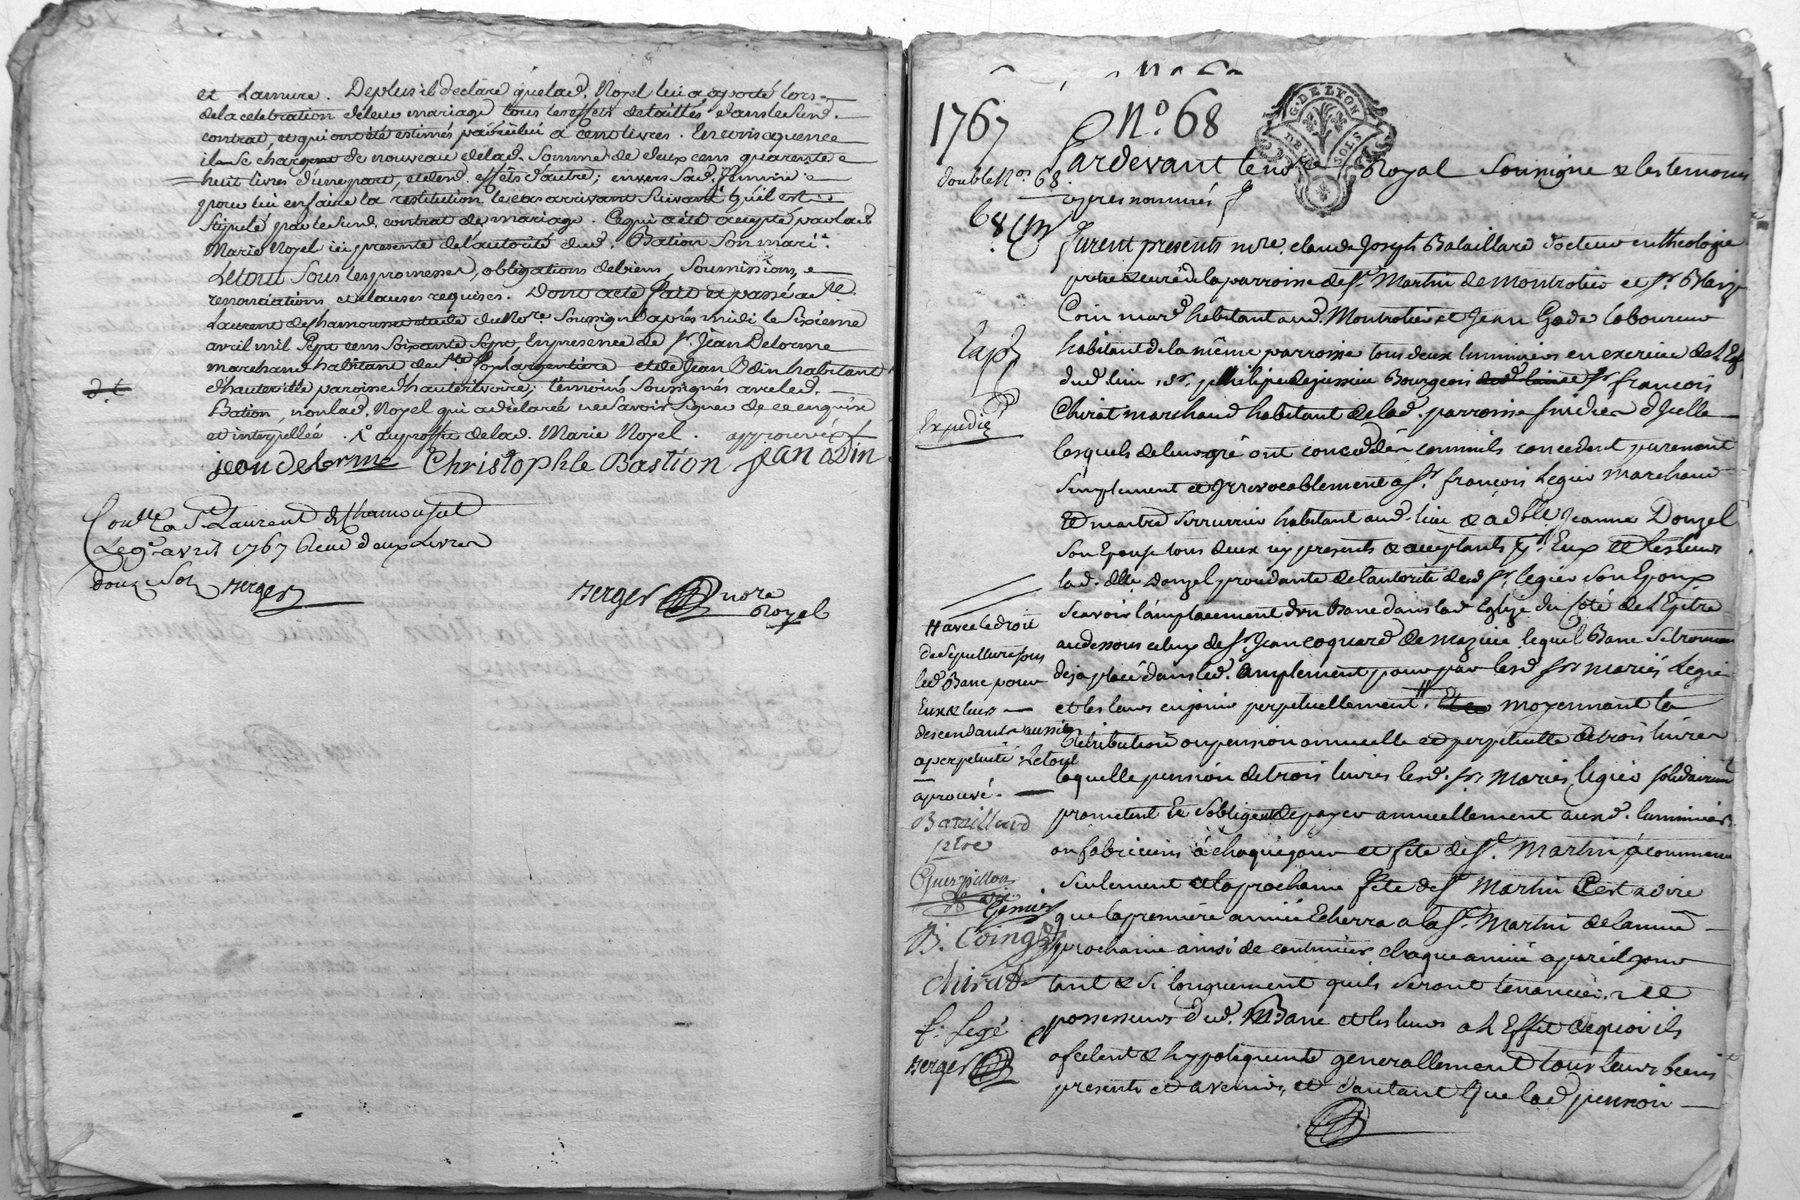 et Lamure. Deplus il declare que lad. Noyel lui a aporté lors
de la celebration de leur mariage tous les effets detaillés dans le susd.
contrat, et qui ont été estimés par icelui a cens livres. En consequence
il se charge de nouveau de lad. somme de deux cens quarente e
huit livres d'une part, et desd. effets d'autre; envers sad. femme e
pour lui en faire la restitution le cas arrivant suivant qu'il est
stipulé par le susd. contrat de mariage. Ce qui a été accepté par lad
Marie Noyel ici presente de l'autorité dud. Bation son mari.
Le tout sous les promesses, obligations de biens, soumissions, e
renonciations, et clauses requises. Dont acte fait et passé a St.
Laurent de Chamousset etude du Nore soussigné après midi le sixieme
avril mil sept cens soixante sept en presence de sr. Jean Delorme
marchand habitant de Ste. Foy l'argentiere et de Jean Odin habitant
d. t.
d'hauteville paroisse d'hauterivoire; temoins soussignés avec led.
Bation, non lad. Noyel qui a déclaré ne savoir signer de ce enquise
et interpellée. au profit de lad. Marie Noyel. approuvé
jean delorme Christophle Bastion jean odin
Conllé a St. Laurent de Chamousset
Le 9e avril 1767 Reçu deux Livres
douze sols Berger
Berger nore
Royal
1767 No. 68
G. DE LYON
DEUX SOLS
Pardevant le nore Royal soussigné & les temoins
double No. 68
cy apres nommés
68
furent presents mre. claude Joseph Bataillard docteur en theologie
pretre & curé de la parroisse de st. Martin de montrotier et sr. Blaize
Coin mard habitant aud. Montrotier et Jean Gode laboureur
habitant de la même parroisse tous deux luminiers en exercice de l'Eg
dud. lieu sr. philipe dejussieu Bourgeois sr. françois
Expedié
Chirat marchand habitant de lad. parroisse sindics d'jcelle
lesquels de leur gré ont concedé & comm'ils concedent purement
simplement et irrevocablement a sr. françois Legier marchand
et maitre serrurier habitant aud. lieu & a dlle Jeanne Donzel
son Epouse tous deux icy presents & acceptants pr. Eux et les leurs
lad. dlle Donzel procedante de l'autorité dud. sr. legier son Epoux
scavoir l'emplacement d'un Banc dans lad Eglize du coté de l'Epitre
au dessous celuy de sr. Jean coquard de mazieu lequel Banc se trouve
deja placé dans led. emplacement pour par lesd. srs mariés Legie
et les leurs en jouir perpetuellement. moyennant la
retribution ou pension annuelle et perpetuelle de trois livres
laquelle pension de trois livres lesd. srs Mariés legier solidairemt
promettent & s'obligent de payer annuellement auxd. luminiers
ou fabriciens a chaque jour et fete de st. Martin a commencer
seulement a la prochaine fete de st Martin C'est a dire
que la premiere année Echerra a la st. Martin de l'année
prochaine ainsi de continuer chaque année a pareil jour
tant & si longuement quils seront tenanciers et
possesseurs dud. Banc et les leurs a l'Effet de quoi ils
afectent & hypotequent generallement tous leurs biens
presents et avenir, et d'autant que lad pension
H avec le droit
de sepulture sous
led. Banc pour
Eux & leurs
descendants aussi
a perpetuité Le tout
aprouvé.
Bataillard
ptre
B. Coing
chirat
f. Legé
Berger